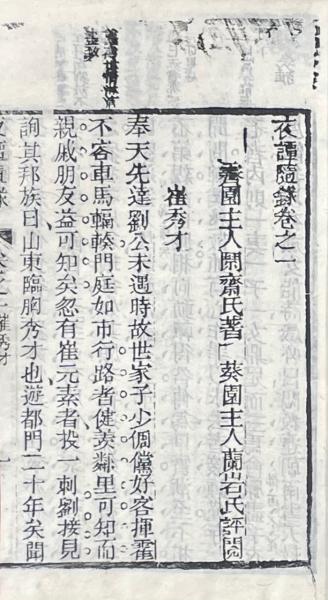 夜譚隨錄卷之一
霽園主人閑齋氏著 葵園主人蘭岩氏評閱
崔秀才
奉天先達劉公未遇時故世家子少倜儻好客揮霍
不吝車馬輻輳門庭如市行路者健羨鄰里可知而
親戚朋友益可知矣忽有崔元素者投一刺劉接見
詢其邦族曰山東臨朐秀才也遊都門二十年矣聞
崔秀才